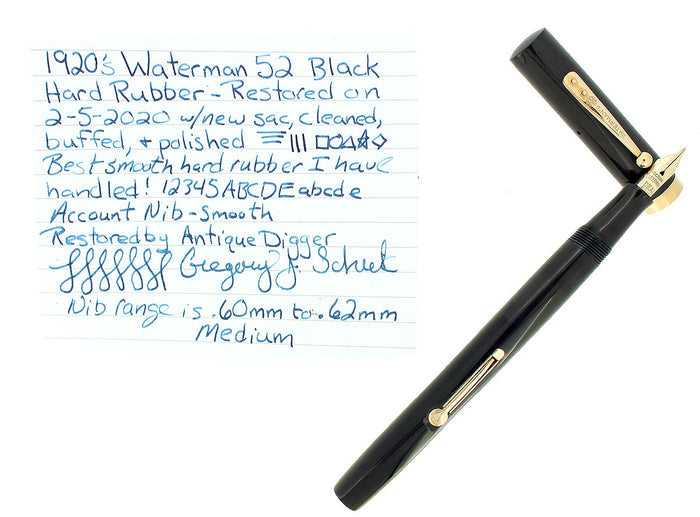 1920's Waterman 52 Black
Hard Rubber - Restored on
2-5-2020 w/new sac, cleaned,
buffed, + polished
Best smooth hard rubber I have
handled! 12345ABCDEabcde
Account Nib - Smooth
Restored by Antique Digger
Gregory J.
Nib range is .60mm to .62mm
Medium